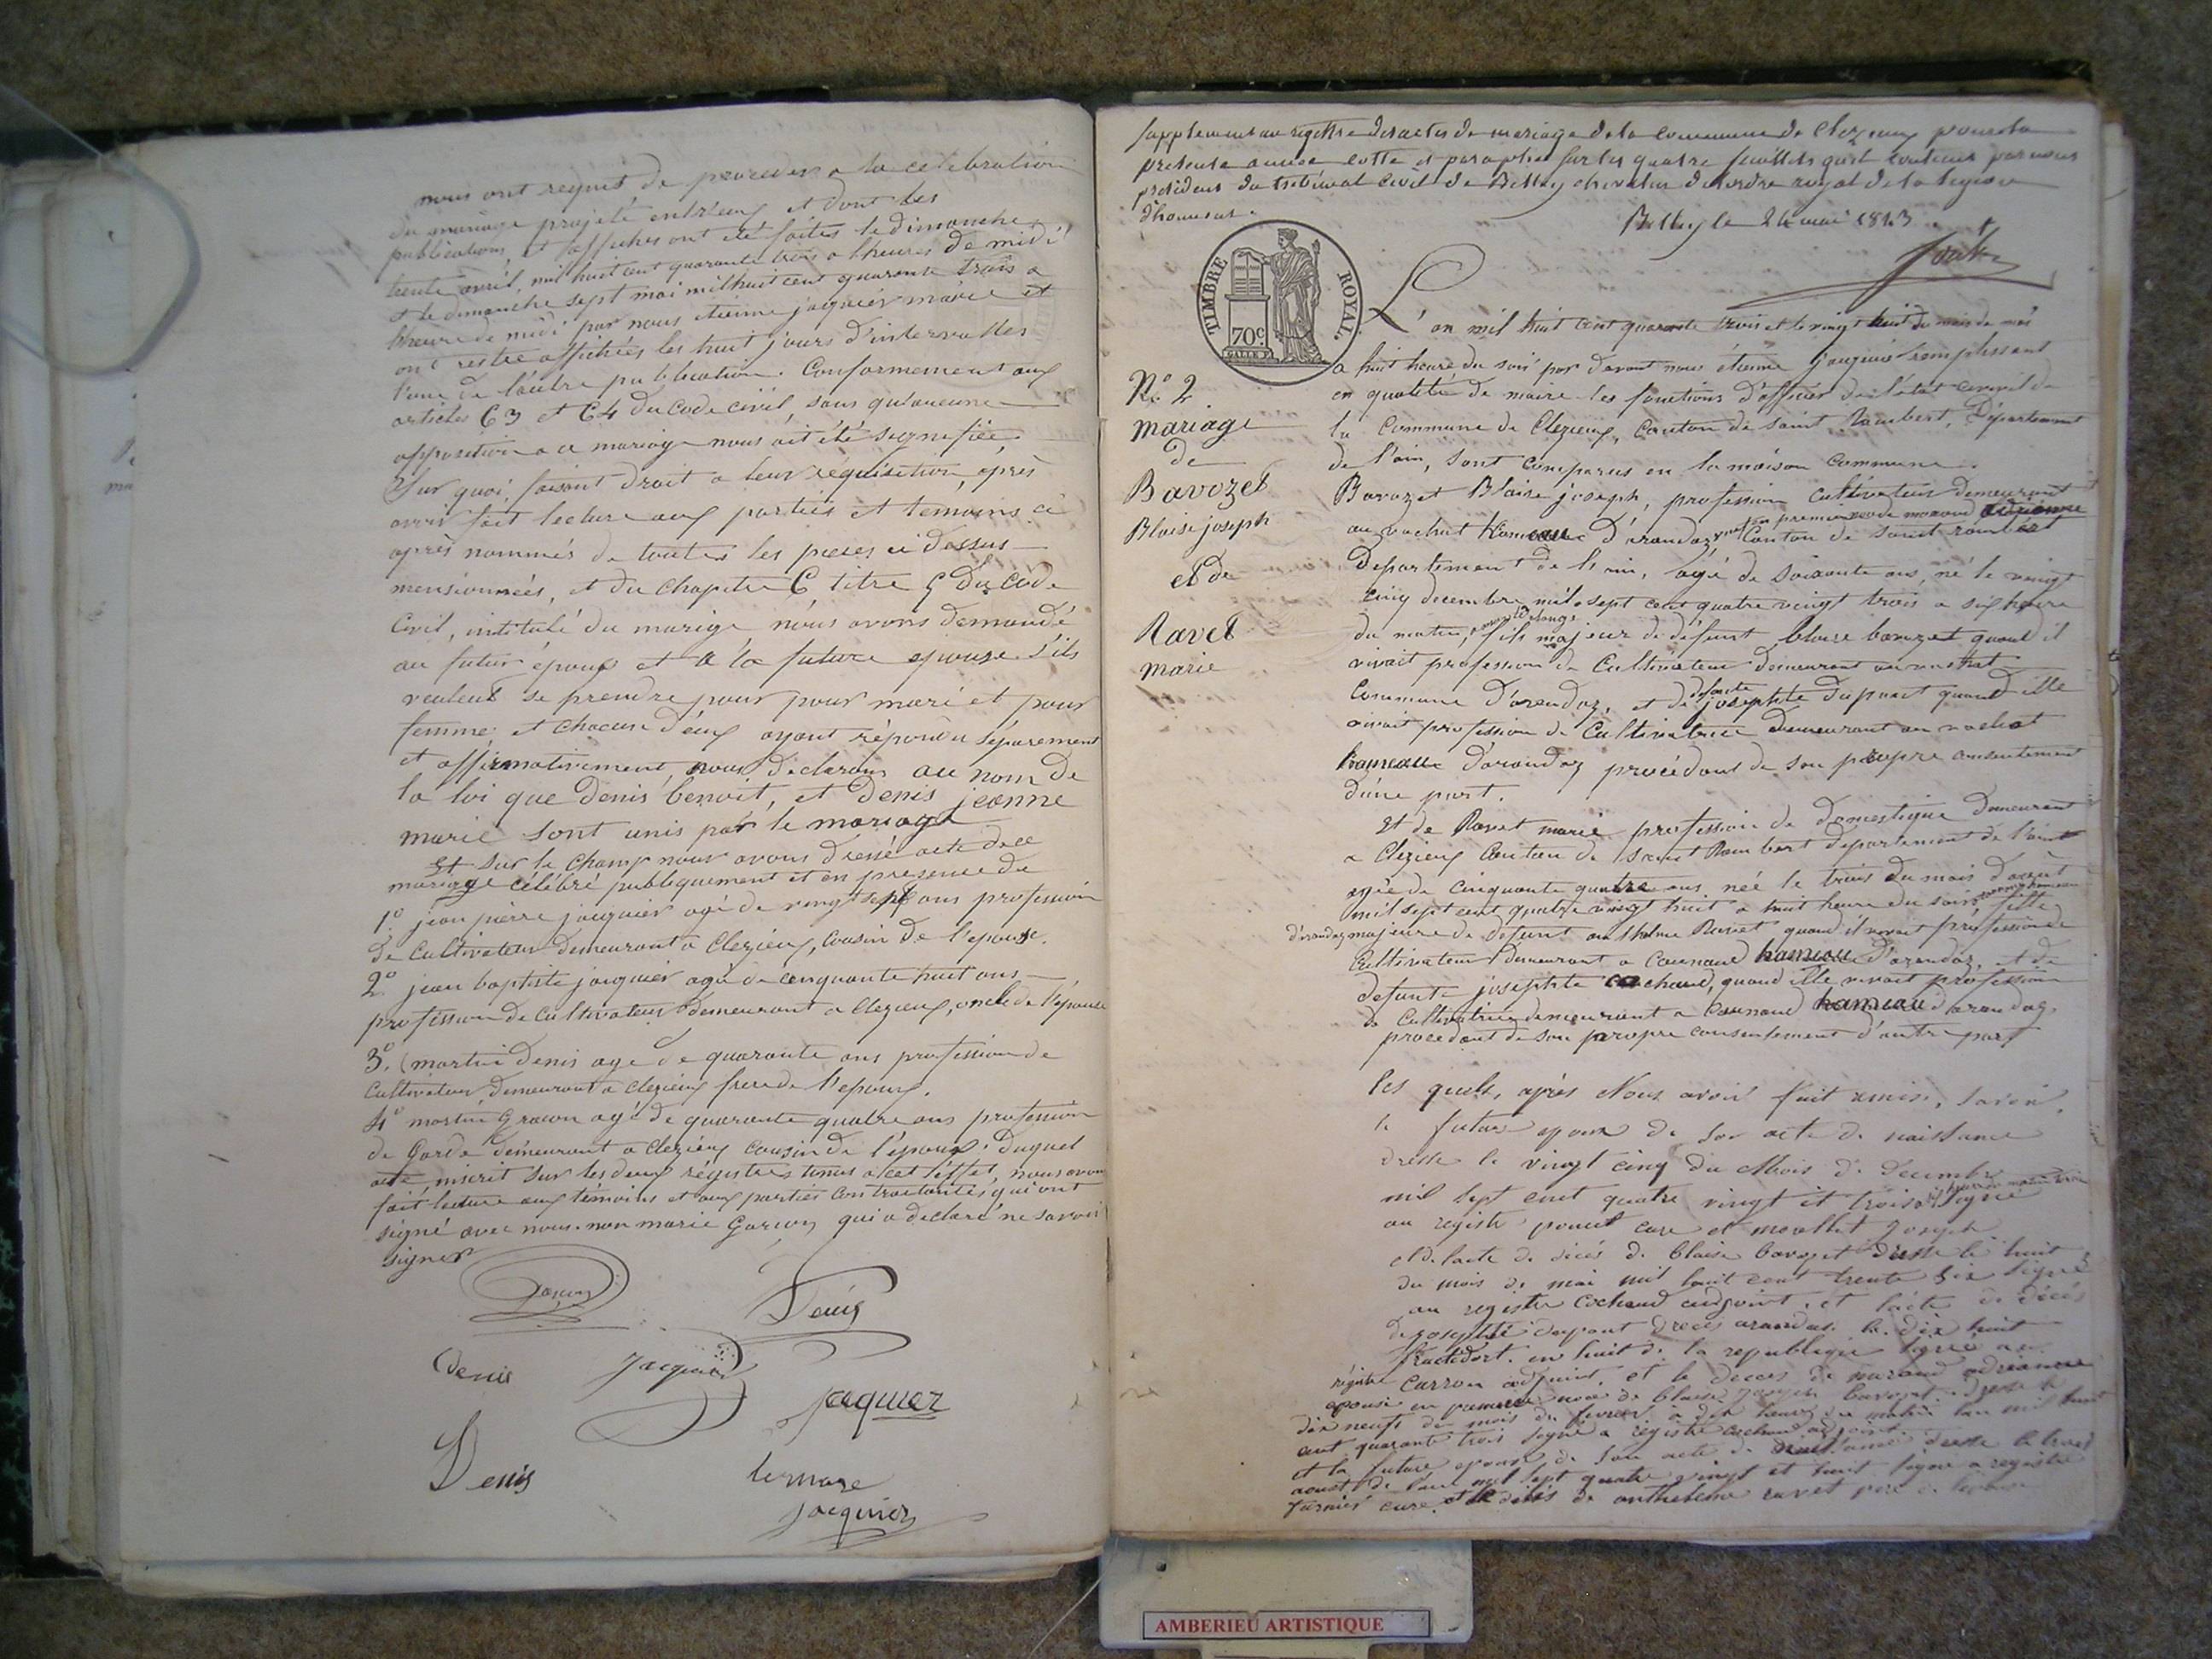 nous ont requis de proceder a la celebration
du mariage projeté entr'eux et dont les
publications, et affiches ont été faites le dimanche
trente avril, mil huit cent quarante trois a l'heure de midi
et le dimanche sept mai mil huit cent quarante trois a
l'heure de midi par nous etienne jaquier maire et
ont resté affichées les huit jours d'intervalles
l'une de l'autre publication. Conformement aux
articles 63 et 64 du Code civil, sans qu'aucune
opposition a ce mariage nous ait été signifiée.
Sur quoi, faisant droit a leur réquisition, après
avoir fait lecture aux parties et temoins ci
après nommés de toutes les pieces ci dessus
mensionnées, et du chapitre 6 titre 5 du Code
Civil, intitulé du marige nous avons demandé
au futur époux et a la future epouse s'ils
veulent se prendre pour pour mari et pour
femme, et chacun d'eux ayant répondu séparement
et affirmativement, nous déclarons au nom de
la loi que denis benoit, et denis jeanne
marie sont unis par le mariage
Et sur le champ nous avons dressé acte de ce
mariage célébré publiquement et en presence de
1º jean pierre jaquier agé de vingt sept ans profession
de Cultivateur demeurant a Clezieux, Cousin de l'epouse.
2º jean baptiste jaquier agé de cinquante huit ans
profession de Cultivateur demeurant a Clezieux, oncle de l'épouse
3º martin denis agé de quarante ans profession de
Cultivateur, demeurant a Clezieux frere de l'epoux.
4º martin Gracon agé de quarante quatre ans profession
de Garde demeurant a clezieux cousin de l'époux. duquel
acte, inscrit sur les deux régistres tenus a cet éffet, nous avons
fait lecture aux témoins et aux parties contractantes qui ont
signé avec nous. non marie Garcon, qui a declaré ne savoir
signer
Denis
Denis Jacquier
jaquier
Denis
le maire
jacquier
Supplement au registre des actes de mariage de la commune de Clezieux pour la
presente année cotté et paraphé sur les quatre feuillets qu'il contient par nous
president du tribunal civil de Belley chevalier de l'ordre royal de la legion
d'honneur.
Belley le 24 mai 1843
TIMBRE ROYAL.
70c
L'an mil huit cent quarante trois et le vingt huit du mois de mai
a huit heure du soir par davant nous etienne jaquier remplissant
Nº 2
en qualité de maire les fonctions d'officier de l'état civil de
mariage
la Commune de Clezieux, Canton de saint Rambert, Département
de
de l'ain, sont comparus en la maison commune.
Bavozet
Bavozet Blaise joseph, profession cultivateur demeurant
Blaise joseph
au vachat hameau d'arandaz Canton de saint rambert
et de
Departement de l'ain, agé de soixante ans, né le vingt
cinq decembre mil sept cent quatre vingt trois a six heure
Ravet
du matin, fils majeur de défunt blaise bavozet quand il
marie
vivait profession de Cultivateur demeurant au vachat
Commune d'arandaz, et de defunte josephte dupont quand elle
vivait profession de Cultivatrice demeurant au vachat
hameau d'arandaz procédant de son propre consentement
d'une part.
Et de Ravet marie profession de domestique demeurant
a Clezieux Canton de saint Rambert departement de l'ain
agée de cinquante quatre ans, née le trois du mois d'août
mil sept cent quatre vingt huit a huit heure du soir fille
d'arandaz majeure de defunt anthelme Ravet quand il vivait profession de
Cultivateur demeurant a Counand hameau d'arandaz, et de
defunte josephte cochand, quand elle vivait profession
de Cultivatrice demeurant a Counand hameau d'arandaz
procedant de son propre consentement d'autre part
les quels, après Nous avoir fait remise, savoir,
le futur epoux de son acte de naissance
dressé le vingt cinq du Mois de decembre
mil sept cent quatre vingt et trois signé
au registre cure et joseph
et de l'acte de décés de blaise bavozet dressé le huit
du mois de mai mil huit cent trente six signé
au registre Cochand adjoint, et l'acte de décés
de josephte dupont arandas le dix huit
fructidort. an huit de la republique signé au
régistre Carron adjoint, et le deces de adrianne
epouse en premiere noce de blaise joseph bavozet dressé le
dix neuf du mois de fevrier a dix heures du matin l'an mil huit
cent quarante trois signé a registre cochand adjoint
et la future epouse de son acte de naissance dressé le trois
aoust de l'an mil sept quatre vingt et huit signé a registre
furnier cure et le décés de anthelme ravet pere de
AMBERIEU ARTISTIQUE